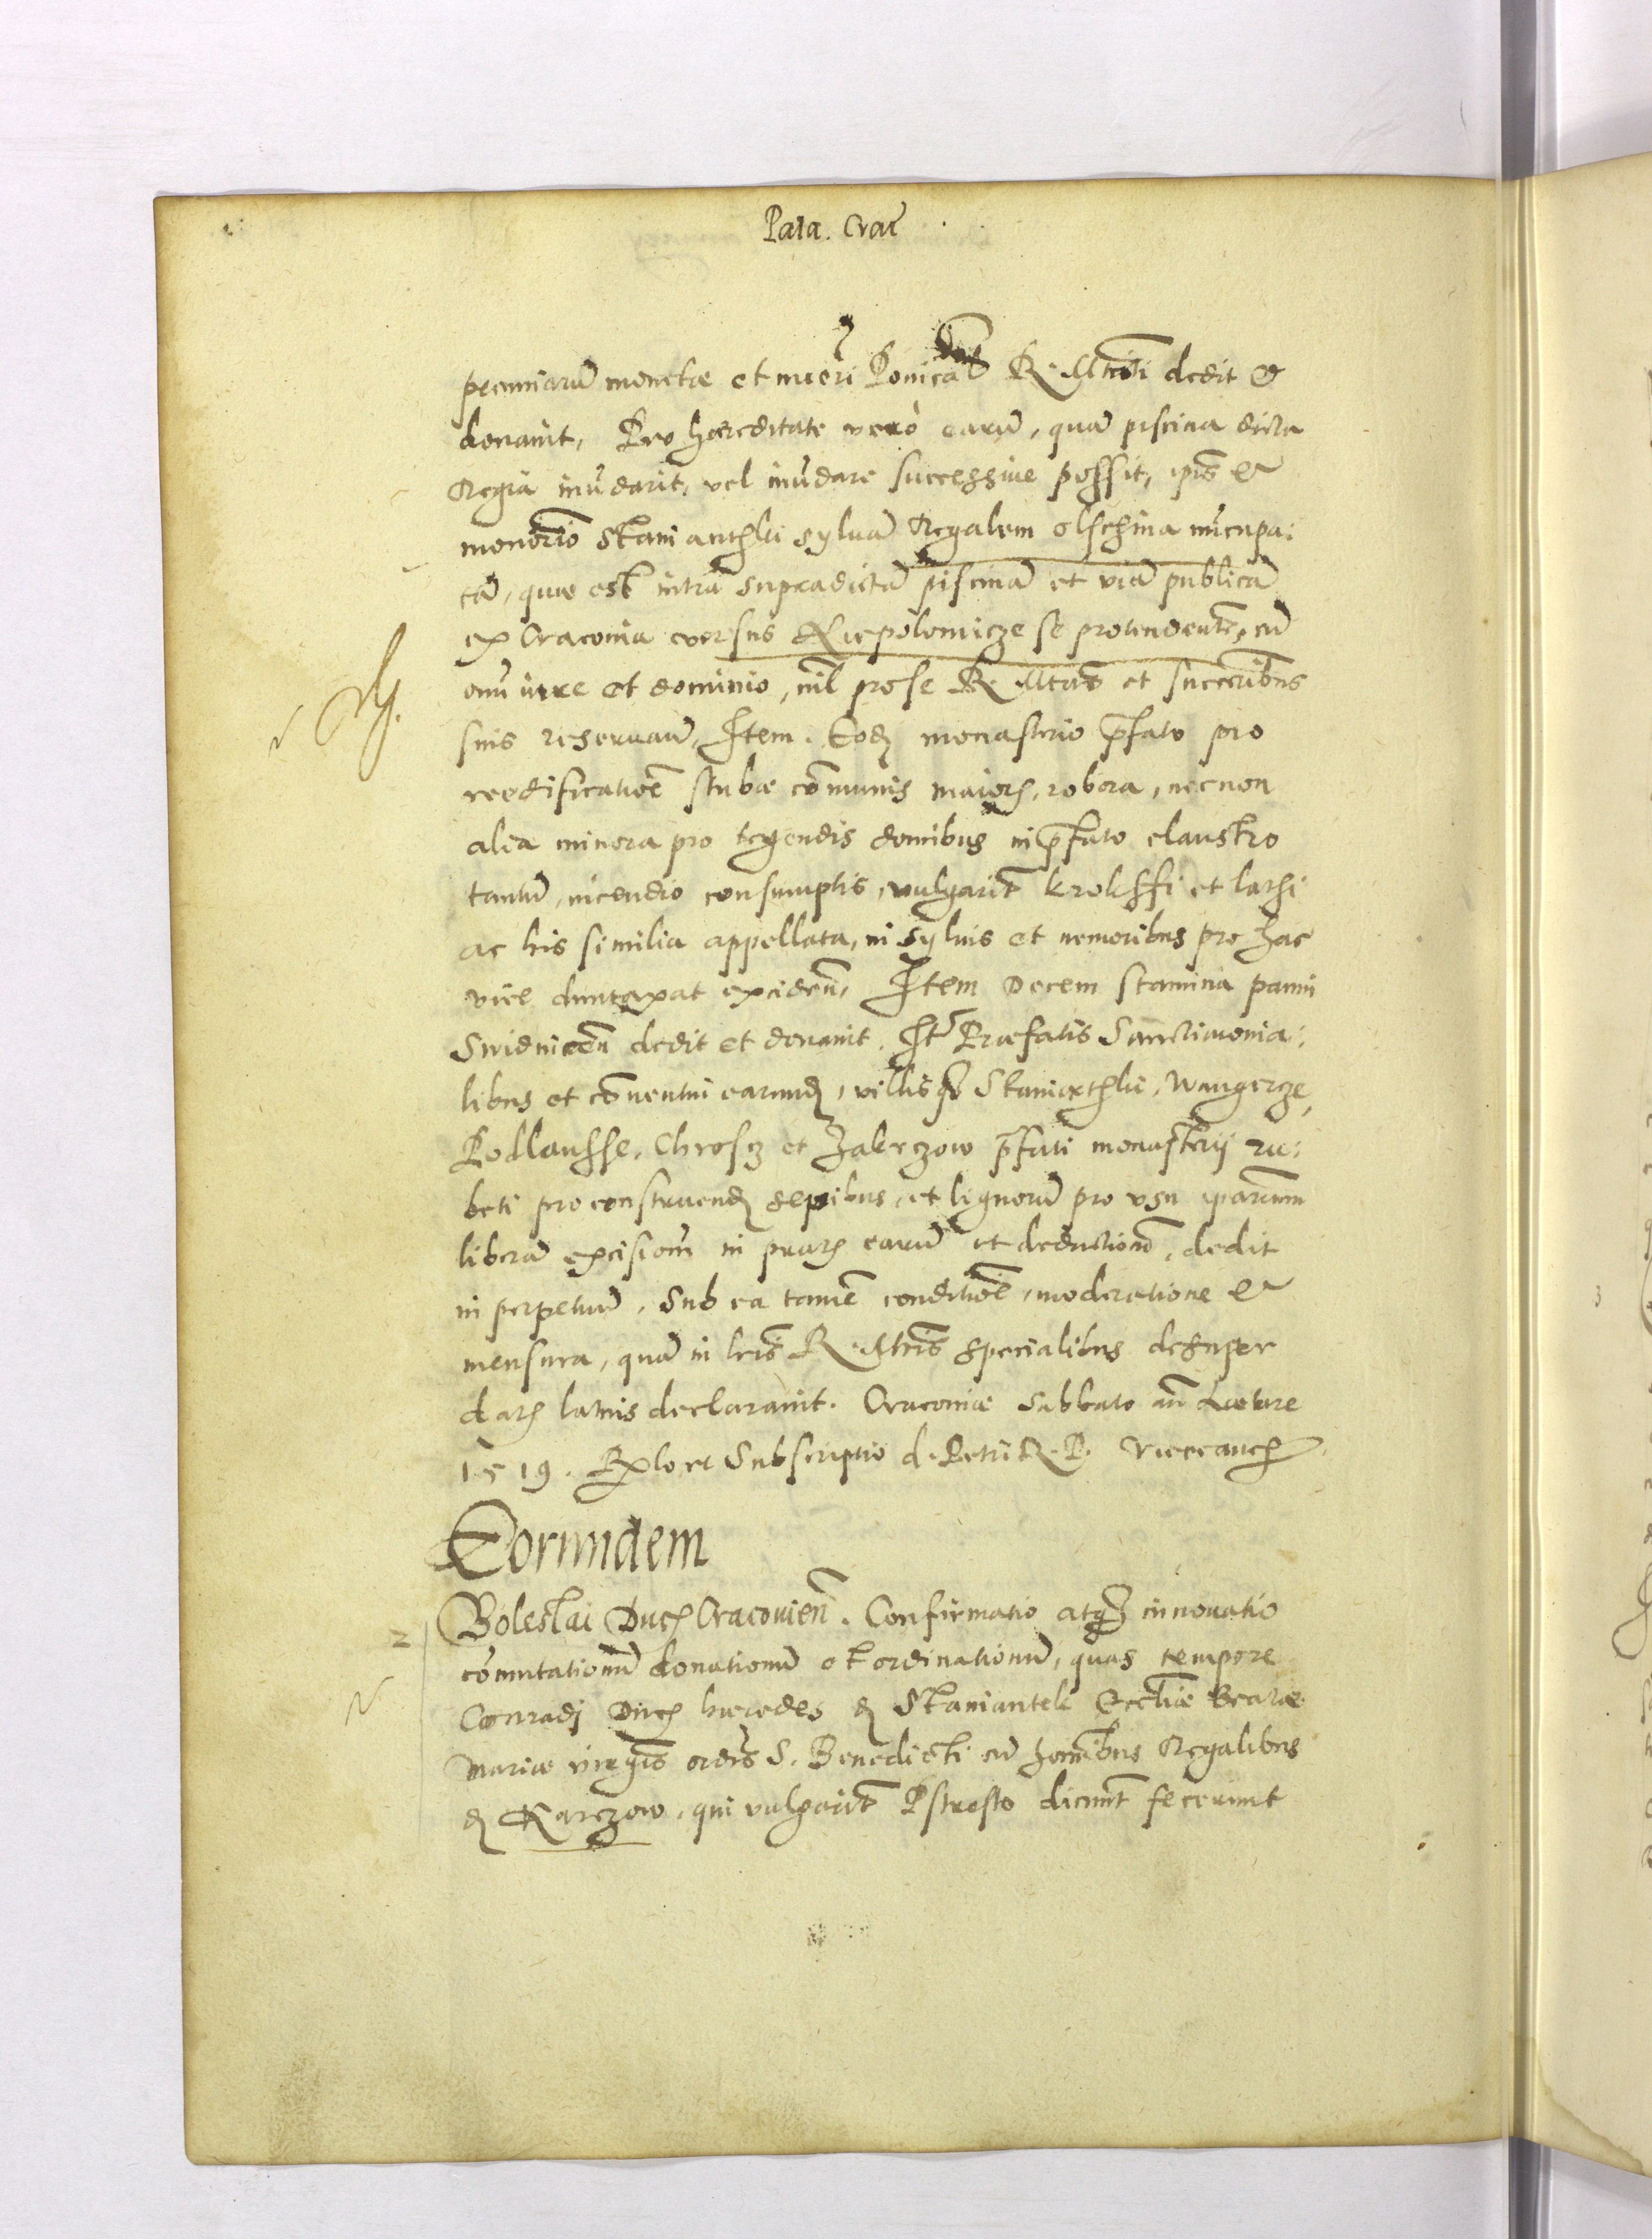 Pala. Crac̄
pecuniarū monetæ et nūeri Poloni R. Mtti dedit et
donauit, Pro hæreditate verò earū, quā piscina dicta
Regia inūdarit, vel inūdare successiue possit, ip̄is et
monrīo Staniantḣki syluā Regalem olschina nūcupa:
tā, quæ est intra supradictā piscinā et viā publicā
ex Cracouia versus Niepolomicze se protendentē, cū
om̄i iure et dominio, nil pro se R. Mtas et succ̄ribus
suis reseruan̄, Item. Eodē monasterio p̄fato pro
reedificatiōe stubæ cōmunis maioris, robora, nec non
alia minora pro tegendis domibus in p̄fato claustro
tantū, incendio consumptis, vulgarit̄ krokffi et lathi
ac his similia appellata, in syluis et nemoribus pro hac
vice duntaxat exciden̄, Item Decem stamina panni
Swidnicen̄ dedit et donauit. It̄ Præfatis Sanctimonia:
libus et cōuentui earundē, villisq̄ Staniathki, Wangercze,
Podlansse, Chroscz et Zakrzow p̄fati monasterij ru:
beti pro construendis sepibus, et lignorū pro vsu iparum
liberā excisiōem in pratis earū et deductionē, dedit
in perpetuū, Sub ea tamē conditiōe, moderatione et
mensura, quā in lrīs R. Mtīs specialibus desuper
datis latius declarauit. Cracouiæ Sabbato an̄ Lætare
1519. Rxlo et Subscriptio d. Petri R. P. Vicecanc̄
Eorundem
2 Boleslai Ducis Cracouien̄. Confirmatio atq̄ innouatio
cōmutationū donationū et ordinationū, quas tempore
Conradj Ducis hæredes de Staniantek Eccliæ Beatæ
Mariæ virgīs ordīs S. Benedicti cū hominibus Regalibus
de Karczow, qui vulgarit̄ Pstrosto dicunt̄ fecerunt